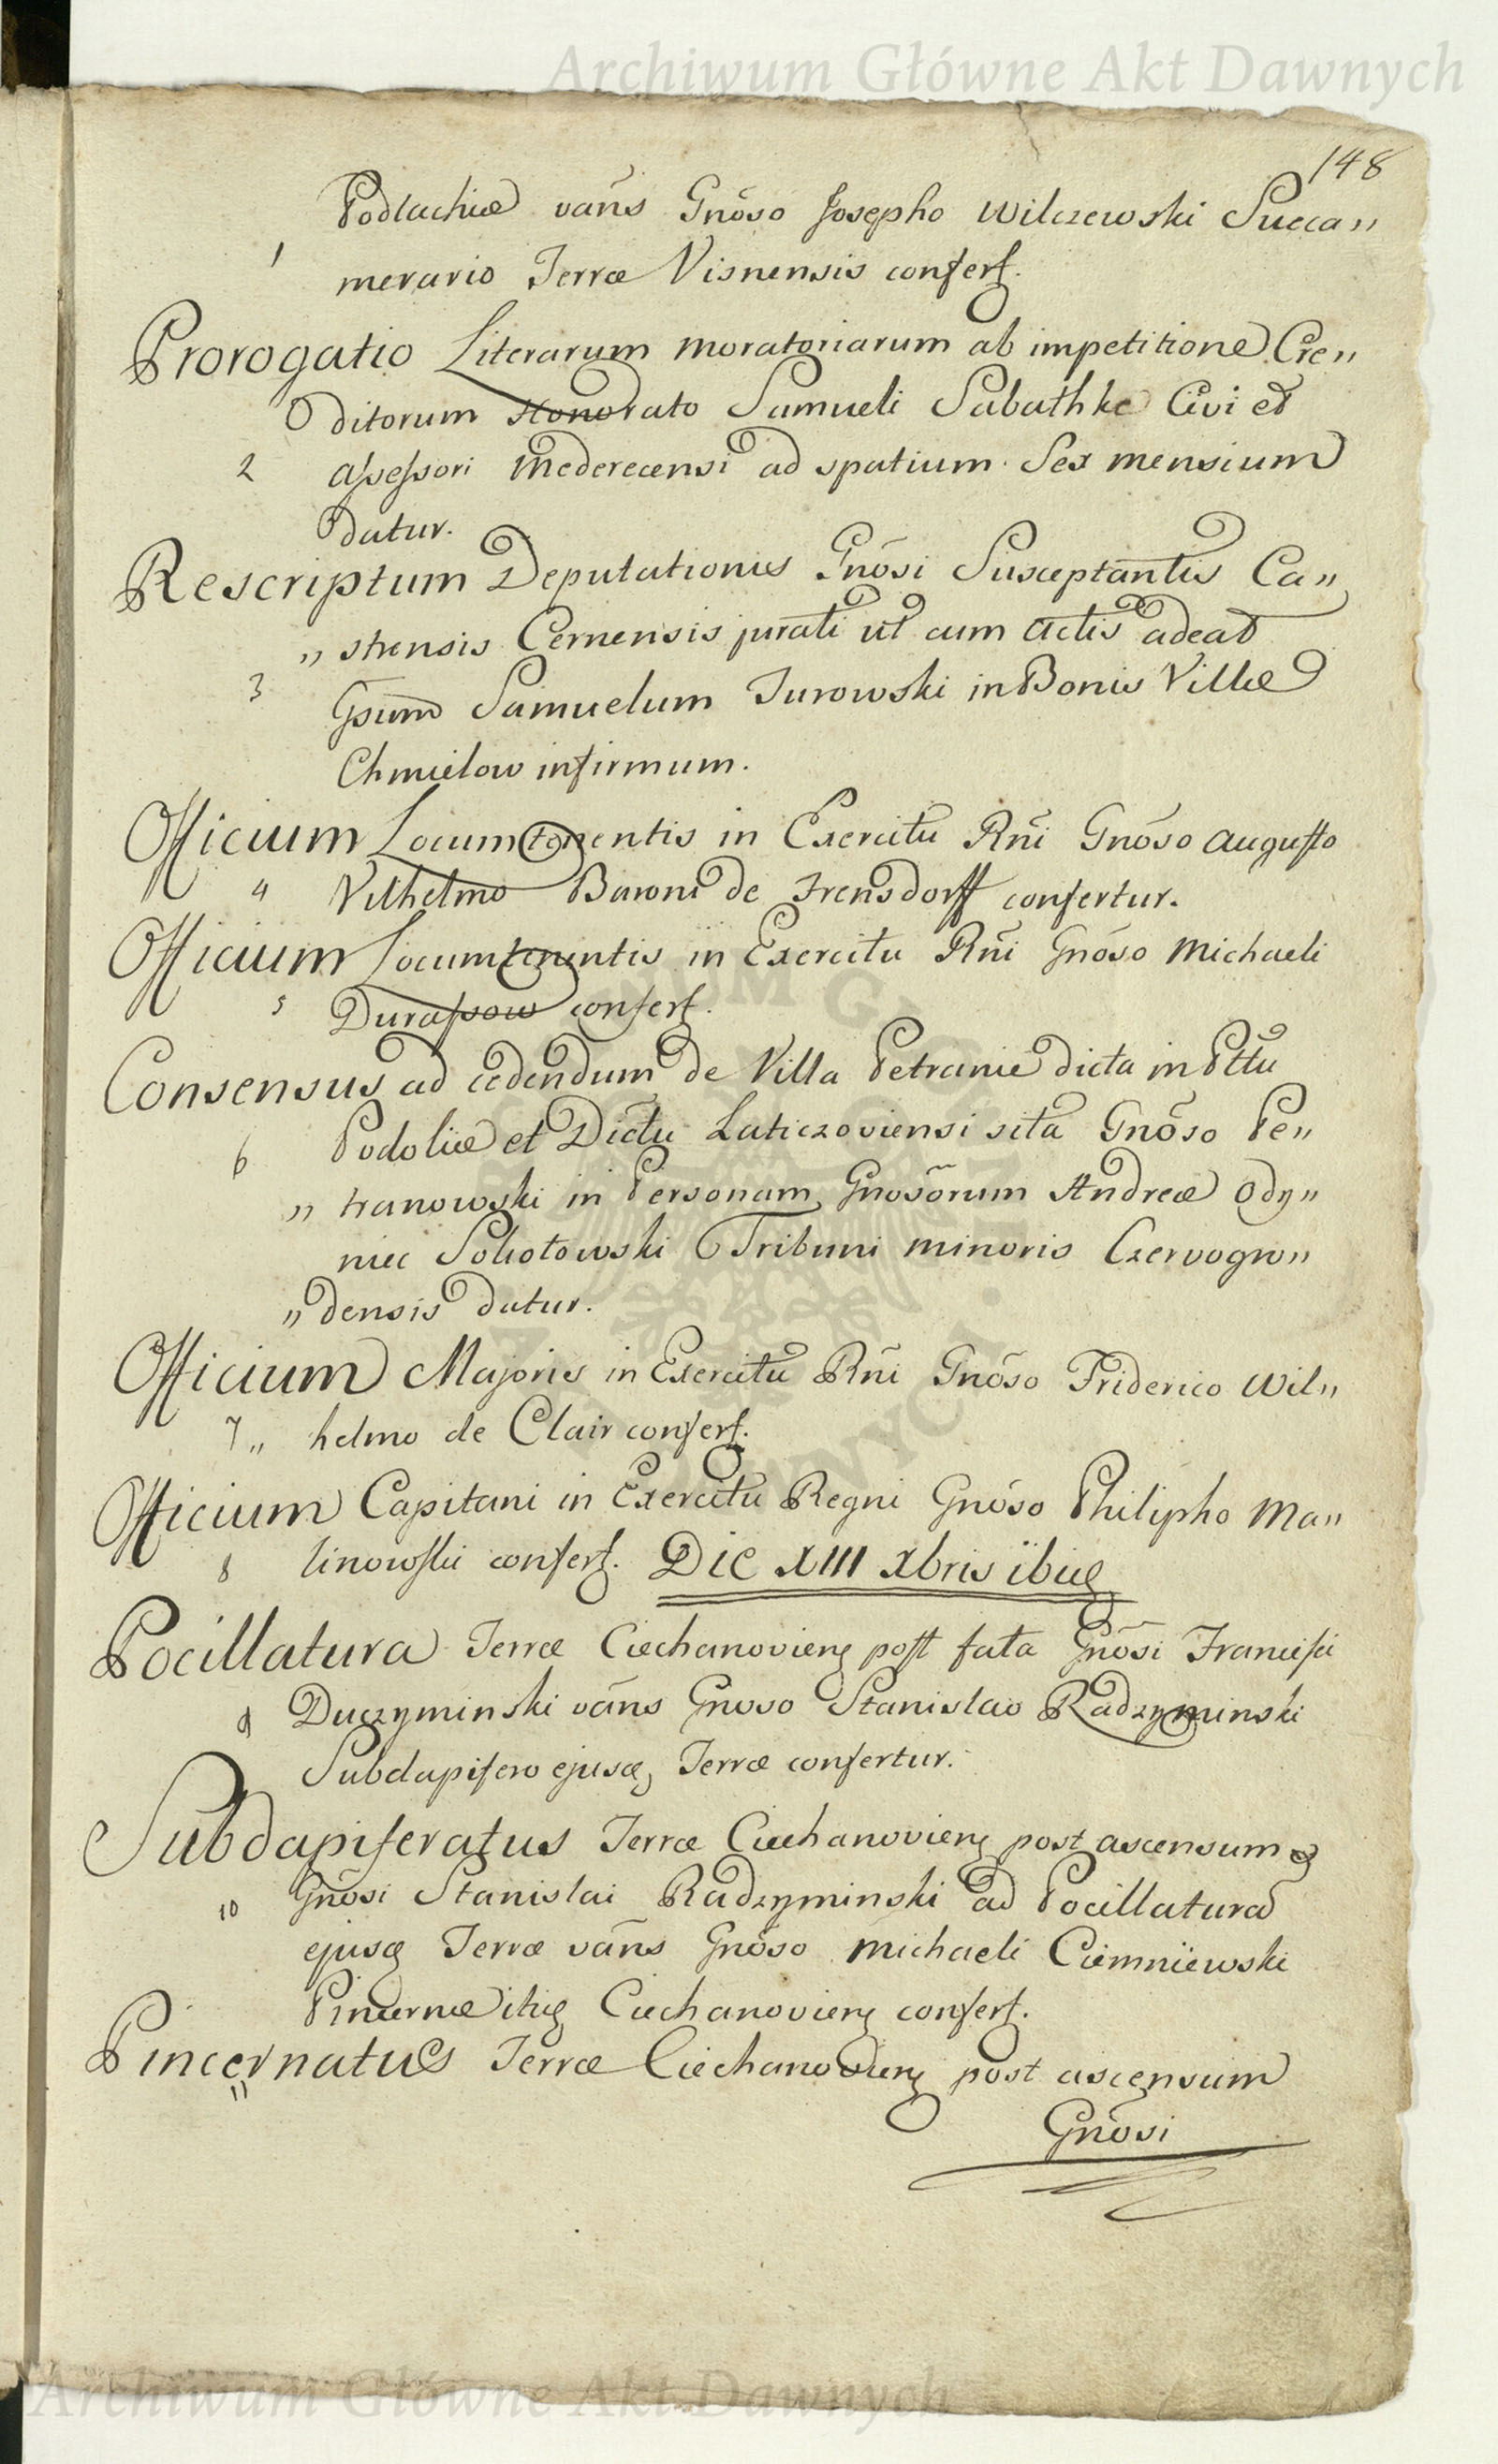 Archiwum Główne Akt Dawnych
148
Podlachiæ vãns Gnõso Josepho Wilczewski Succa„
1 merario Terræ Visnensis confert.
Prorogatio Literarum moratoriarum ab impetitione Cre„
ditorum Honorato Samueli Sabathke Civi et
2 assessori Mederecensi ad spatium Sex mensium
datur.
Rescriptum Deputationis Gnõsi Susceptantis Ca„
„ strensis Cernensis jurati ut cum Actis adeat
3 Gsum Samuelum Turowski in Bonis Villæ
Chmielow infirmum.
Officium Locumtenentis in Exercitu Rñi Gnõso Augusto
4 Vilhelmo Baroni de Frensdorff confertur.
Officium Locumtenentis in Exercitu Rñi Gnõso Michaeli
5 Durassow confert.
Consensus ad cedendum de Villa Petranie dicta in Pttu
6 Podoliæ et Dictu Laticzoviensi sita Gnõso Pe„
„ tranowski in Personam Gnosõrum Andreæ Ody„
niec Sokołowski Tribuni minoris Czervogro„
„ densis datur.
Officium Majoris in Exercitu Rñi Gnõso Friderico Wil„
7 „ helmo de Clair confert.
Officium Capitani in Exercitu Regni Gnõso Philipho Ma„
8 linowski confert. Die XIII Xbris ibid
Pocillatura Terræ Ciechanovien post fata Gnõsi Francisci
9 Duczyminski vãns Gnoso Stanislao Radzyminski
Subdapifero ejusd, Terræ confertur.
Subdapiferatus Terræ Ciechanovien post ascensum
10 Gnõsi Stanislai Radzyminski ad Pocillaturã
ejusd Terræ vãns Gnõso Michaeli Ciemniewski
Pincernæ itid Ciechanovien confert.
Pincernatus Terræ Ciechanovien post ascensum
11
Gnõsi
Archiwum Główne Akt Dawnych